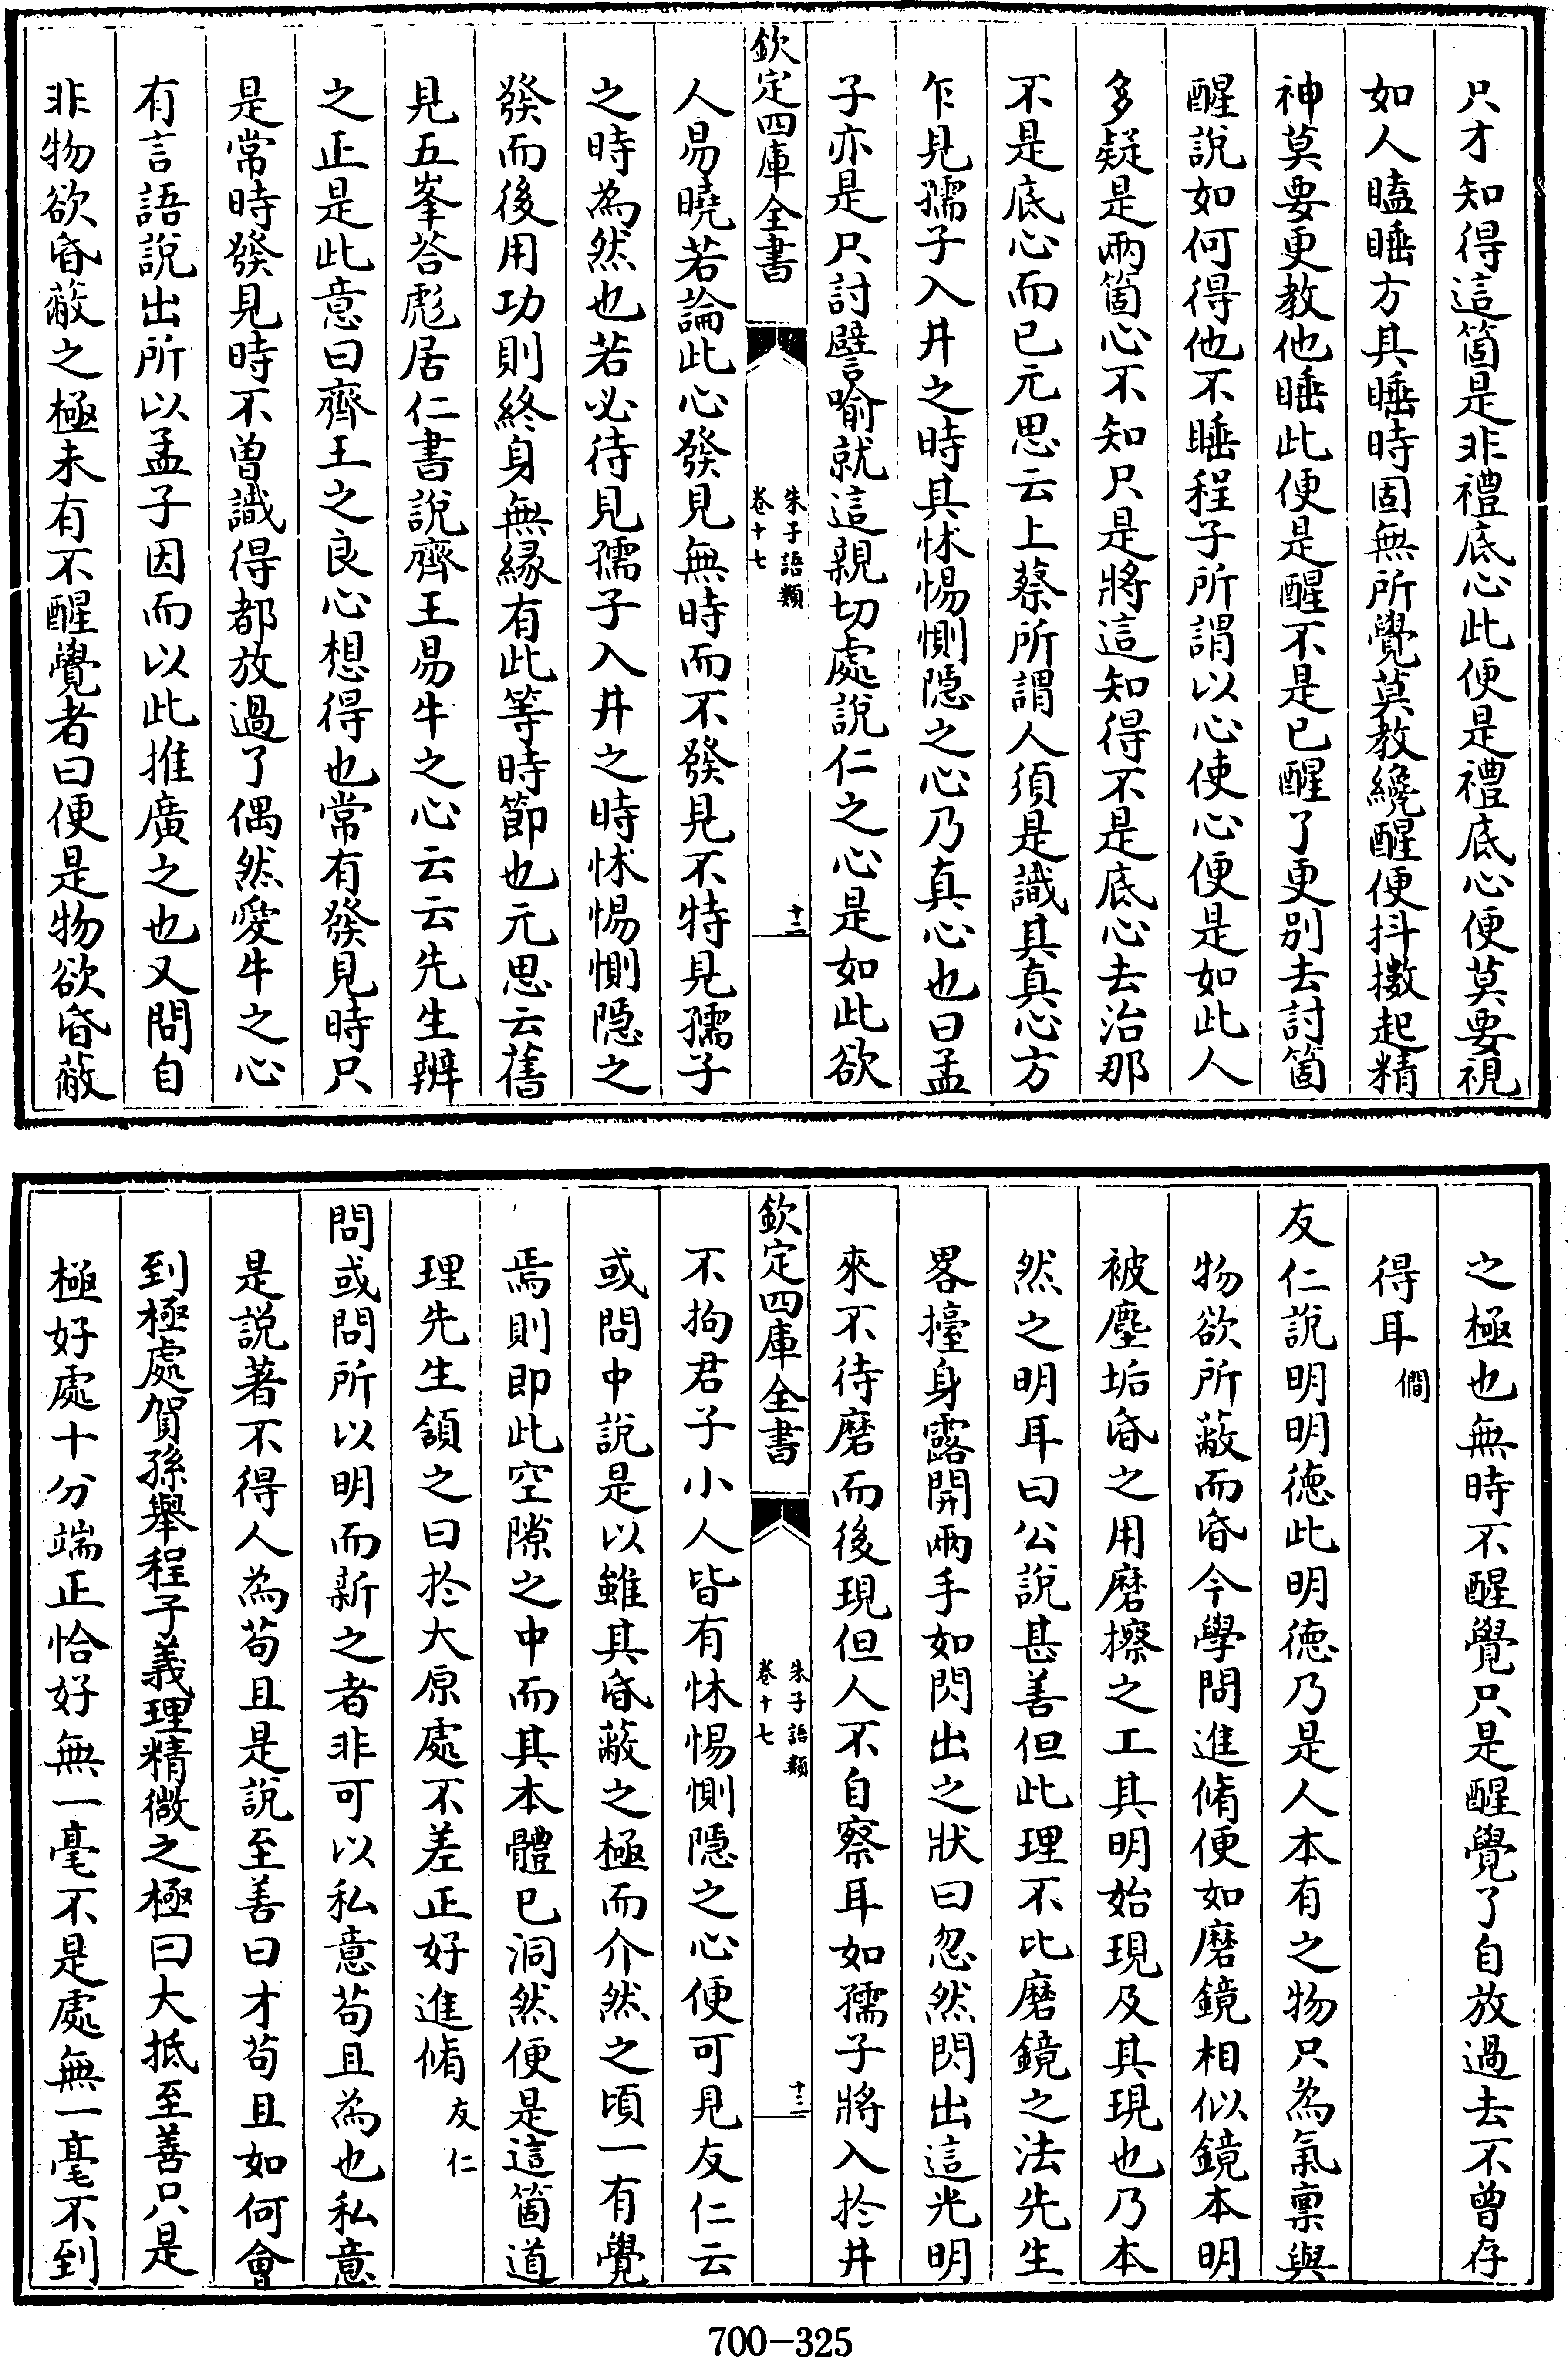 只才知得這箇是非禮底心此便是禮底心便莫要視
如人瞌睡方其睡時固無所覺莫教纔醒便抖擻起精
神莫要更教他睡此便是醒不是已醒了更别去討箇
醒說如何得他不睡程子所謂以心使心便是如此人
多疑是兩箇心不知只是將這知得不是底心去治那
不是底心而已元思云上蔡所謂人須是識其真心方
乍見孺子入井之時其怵惕惻隠之心乃真心也曰孟
子亦是只討譬喻就這親切處說仁之心是如此欲
欽定四庫全書
朱子語類
卷十七
十二
人易曉若論此心發見無時而不發見不特見孺子
之時為然也若必待見孺子入井之時怵惕惻隠之
發而後用功則終身無縁有此等時節也元思云舊
見五峯荅彪居仁書說齊王易牛之心云云先生辨
之正是此意曰齊王之良心想得也常有發見時只
是常時發見時不曽識得都放過了偶然愛牛之心
有言語說出所以孟子因而以此推廣之也又問自
非物欲昏蔽之極未有不醒覺者曰便是物欲昏蔽
之極也無時不醒覺只是醒覺了自放過去不曾存
得耳僩
友仁說明明徳此明徳乃是人本有之物只為氣稟與
物欲所蔽而昏今學問進脩便如磨鏡相似鏡本明
被塵垢昏之用磨擦之工其明始現及其現也乃本
然之明耳曰公說甚善但此理不比磨鏡之法先生
畧擡身露開兩手如閃出之狀曰忽然閃出這光明
來不待磨而後現但人不自察耳如孺子將入於井
欽定四庫全書
朱子語類
卷十七
十三
不拘君子小人皆有怵惕惻隠之心便可見友仁云
或問中說是以雖其昏蔽之極而介然之頃一有覺
焉則即此空隙之中而其本體已洞然便是這箇道
理先生頷之曰於大原處不差正好進脩友仁
問或問所以明而新之者非可以私意苟且為也私意
是說著不得人為苟且是說至善曰才苟且如何會
到極處賀孫舉程子義理精微之極曰大抵至善只是
極好處十分端正恰好無一毫不是處無一毫不到
700-325